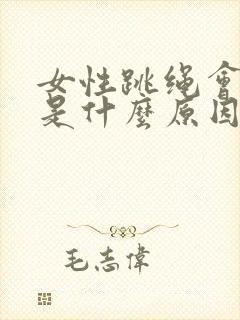 女性跳绳會
是什麼原因
毛志偉